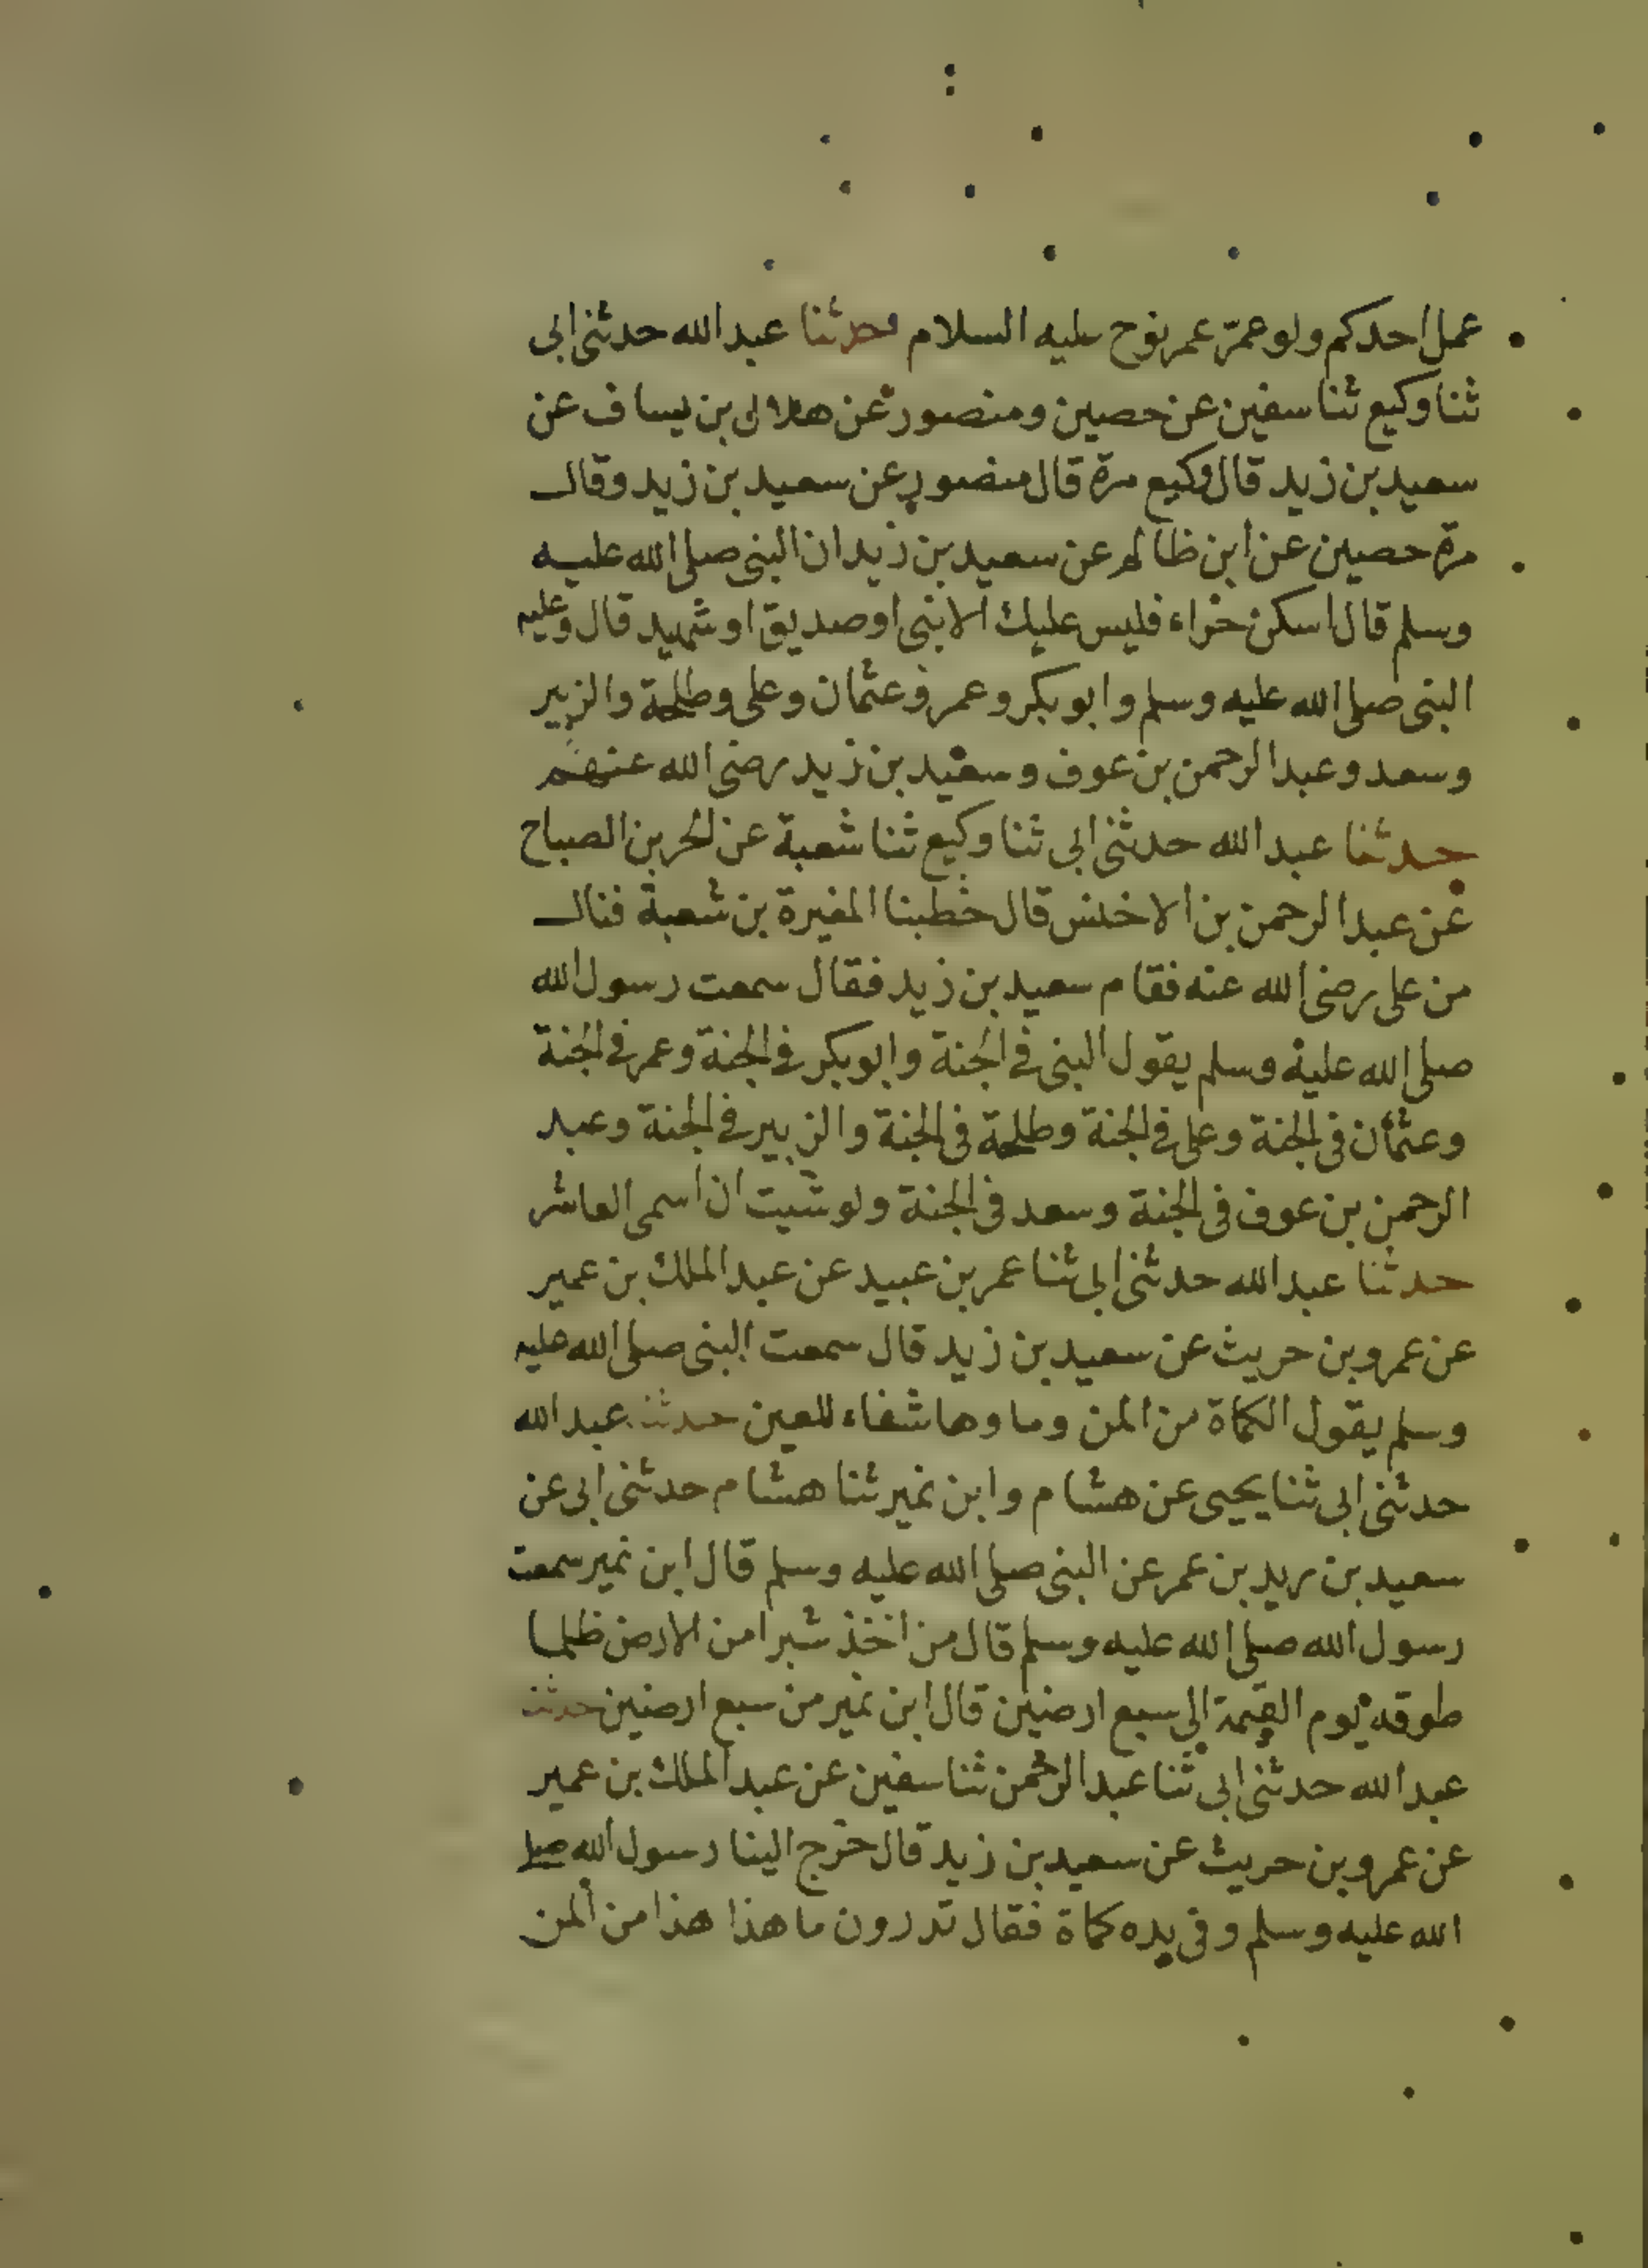 عمل احدكم ولو عمّر عمر نوح عليه السلام حدثنا عبد الله حدثني ابي
ثنا وكيع ثنا سفين عن حصين ومنصور عن هلال بن يساف عن
سعيد بن زيد قال وكيع مرة قال منصور عن سعيد بن زيد وقال
مرة حصين عن ابن ظالم عن سعيد بن زيد ان النبي صلى الله عليه
وسلم قال اسكن حراء فليس عليك الا نبي او صديق او شهيد قال وعليه
النبي صلى الله عليه وسلم وابو بكر وعمر وعثمان وعلي وطلحة والزبير
وسعد وعبد الرحمن بن عوف وسعيد بن زيد رضي الله عنهم
حدثنا عبد الله حدثني ابي ثنا وكيع ثنا شعبة عن الحر بن الصباح
عن عبد الرحمن بن الاخنس قال خطبنا المغيرة بن شعبة فنال
من علي رضي الله عنه فقام سعيد بن زيد فقال سمعت رسول الله
صلى الله عليه وسلم يقول النبي في الجنة وابو بكر في الجنة وعمر في الجنة
وعثمان في الجنة وعلي في الجنة وطلحة في الجنة والزبير في الجنة وعبد
الرحمن بن عوف في الجنة وسعد في الجنة ولو شيت ان اسمي العاشر
حدثنا عبد الله حدثني ابي ثنا عمر بن عبيد عن عبد الملك بن عمير
عن عمرو بن حريث عن سعيد بن زيد قال سمعت النبي صلى الله عليه
وسلم يقول الكماة من المن وماوها شفاء للعين حدثنا عبد الله
حدثني ابي ثنا يحيى عن هشام وابن نمير ثنا هشام حدثني ابي عن
سعيد بن زيد بن عمر عن النبي صلى الله عليه وسلم قال ابن نمير سمعت
رسول الله صلى الله عليه وسلم قال من اخذ شبرا من الارض ظلما
طوقه يوم القيمة الى سبع ارضين قال ابن نمير من سبع ارضين حدثنا
عبد الله حدثني ابي ثنا عبد الرحمن ثنا سفين عن عبد الملك بن عمير
عن عمرو بن حريث عن سعيد بن زيد قال خرج الينا رسول الله صلى
الله عليه وسلم وفي يده كماة فقال تدرون ما هذا هذا من المن